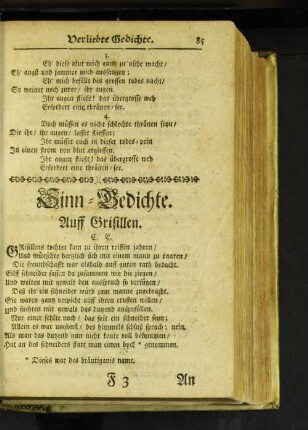 Verliebte Gedichte. 85
3.
Eh' diese glut mich gantz zu asche macht/
Eh' angst und jammer mich aussaugen;
Eh' mich befällt des grossen todes nacht/
So weinet noch zuvor/ ihr augen.
Ihr augen fliest! das übergrosse weh
Erfordert eine thränen-see.
4.
Doch müssen es nicht schlechte thränen seyn/
Die ihr/ ihr augen/ lasset fliessen;
Ihr müsset euch in dieser todes-pein
In einen strom von blut ergiessen.
Ihr augen fliest! das übergrosse weh
Erfordert eine thränen-see.
Sinn-Gedichte.
Auff Grisillen.
C. E.
GRisillens tochter kam zu ihren reiffen jahren/
Und wünschte hertzlich sich mit einem mann zu paaren/
Die freundschafft war alsbald auff guten rath bedacht.
Eilff schneider sassen da zusammen wie die ziegen/
Und wolten mit gewalt den ausspruch so verfügen/
Daß ihr ein schneider würd zum manne zugebracht.
Sie waren gantz verpicht auff ihren ersten willen/
und suchten mit gewalt das dutzend auszufüllen.
Nur einer fehlte noch/ das seit ein schneider seyn;
Allein es war umsonst/ des himmels schluß sprach: nein.
Als man das dutzend nun nicht konte voll bekommen/
Hat an des schneiders statt man einen bock * genommen.
* Dieses war des bräutigams name.
F 3 An